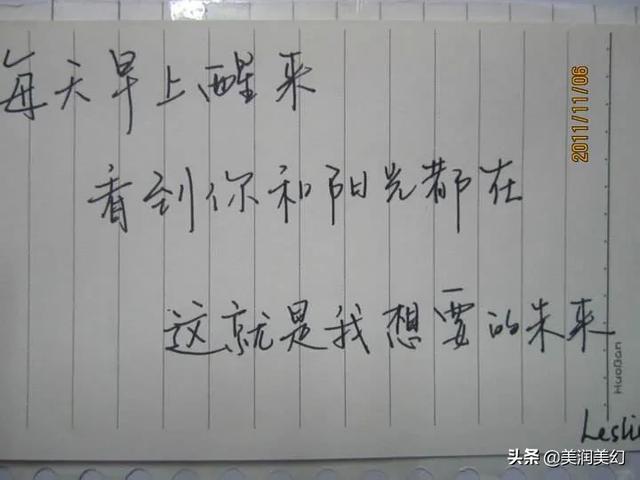 每天早上醒来
看到你和阳光都在
这就是我想要的未来
Leslie
2011/11/06
HuaBan
头条 @美润美幻